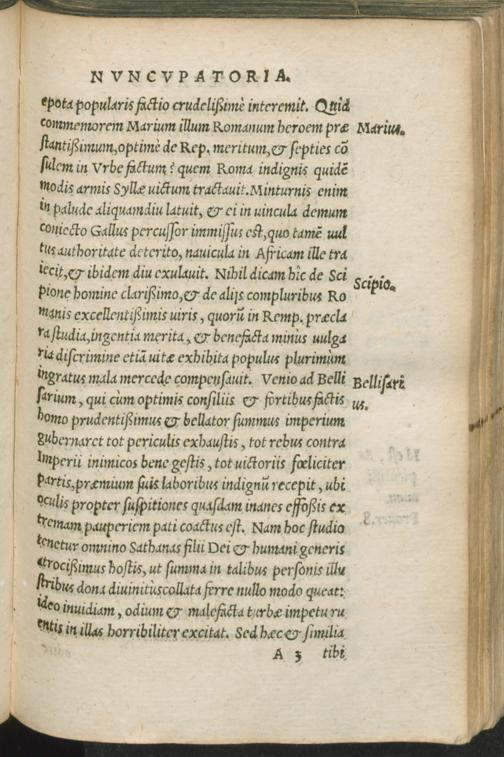 NVNCVPATORIA.
epota popularis factio crudelißimè interemit. Quid
commemorem Marium illum Romanum heroem præ Marius.
stantißimum, optimè de Rep. meritum, & septies cõ
sulem in Vrbe factum? quem Roma indignis quidẽ
modis armis Syllæ victum tractauit. Minturnis enim
in palude aliquamdiu latuit, & ei in uincula demum
coniecto Gallus percussor immissus est, quo tamẽ uul
tus authoritate deterito, nauicula in Africam ille tra
iecit, & ibidem diu exulauit. Nihil dicam hîc de Sci
pione homine clarißimo, & de alijs compluribus Ro Scipio.
manis excellentißimis uiris, quorũ in Remp. præcla
ra studia, ingentia merita, & benefacta minùs uulga
ria discrimine etiã uitæ exhibita populus plurimùm
ingratus mala mercede compensauit. Venio ad Belli Bellisari
sarium, qui cùm optimis consiliis & fortibus factis us.
homo prudentißimus & bellator summus imperium
gubernaret tot periculis exhaustis, tot rebus contra
Imperii inimicos bene gestis, tot uictoriis fœliciter
partis, præmium suis laboribus indignũ recepit, ubi
oculis propter suspitiones quasdam inanes effoßis ex
tremam pauperiem pati coactus est. Nam hoc studio
tenetur omnino Sathanas filii Dei & humani generis
atrocißimus hostis, ut summa in talibus personis illu
stribus dona diuinitùs collata ferre nullo modo queat:
ideo inuidiam, odium & malefacta turbæ impetu ru
entis in illas horribiliter excitat. Sed hæc & similia
A 3 tibi